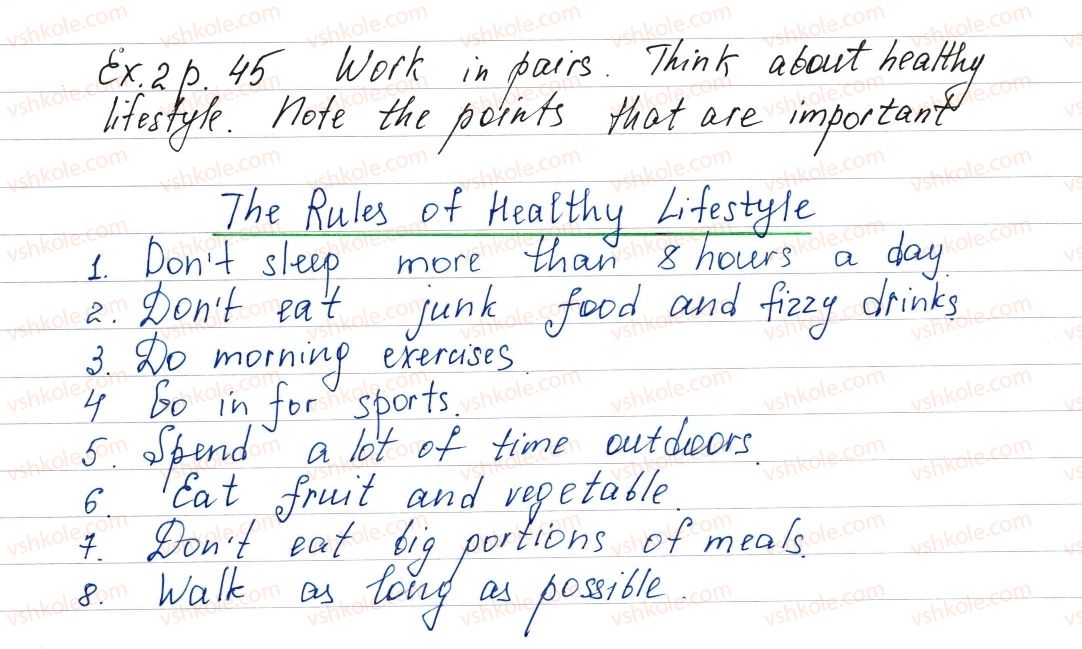 Ex. 2 p. 45 Work in pairs. Think about healthy
lifestyle. Note the points that are important
The Rules of Healthy Lifestyle
1. Don't sleep more than 8 hours a day.
2. Don't eat junk food and fizzy drinks.
3. Do morning exercises.
4 Go in for sports.
5. Spend a lot of time outdoors.
6. Eat fruit and vegetable.
7. Don't eat big portions of meals.
8. Walk as long as possible.
vshkole.com